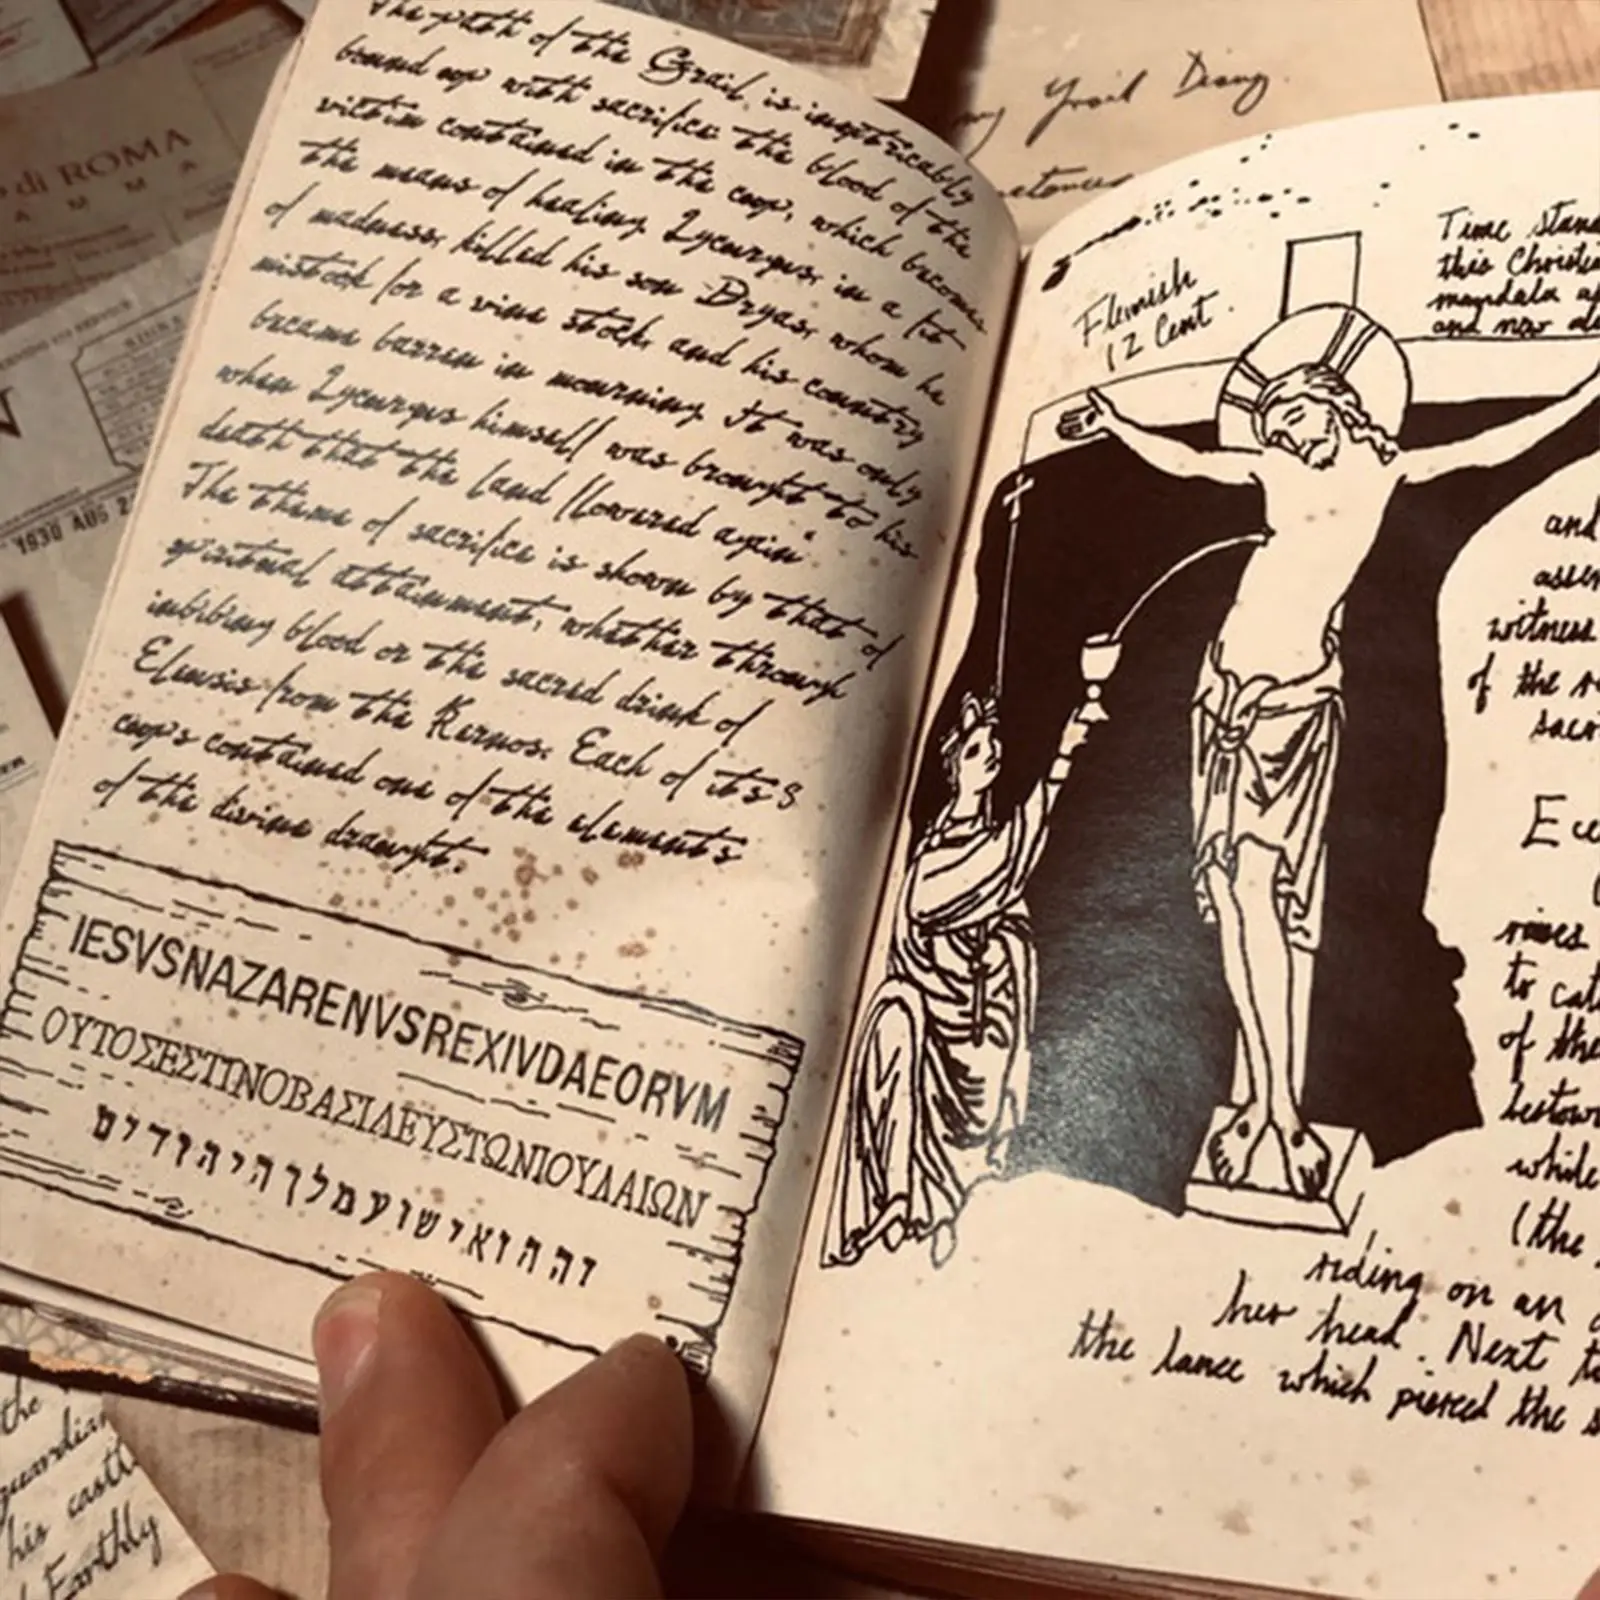 The path of the Grail is inextricably
bound up with sacrifice: the blood of the
victim contained in the cup, which becomes
the means of healing. Lycurgus, in a fit
of madness, killed his son Dryas, whom he
mistook for a vine stock, and his country
became barren in mourning. It was only
when Lycurgus himself was brought to his
death that the land flowered again.
The theme of sacrifice is shown by that of
spiritual attainment, whether through
imbibing blood or the sacred drink of
Eleusis from the Kernos. Each of its 8
cups contained one of the elements
of the divine draught.
IESVSNAZARENVSREXIVDAEORVM
ΟΥΤΟΣΕΣΤΙΝΟΒΑΣΙΛΕΥΣΤΩΝΙΟΥΔΑΙΩΝ
זההואישועמלךהיהודים
Flemish
12 Cent.
Time
this
mandala
and now
and
witness
of the
Next
riding on an
her head. Next
the lance which pierced the
rises
to
of the
while
(the
Grail Diary
di ROMA
1930 AUG 2
the
guardian
his
Earthly